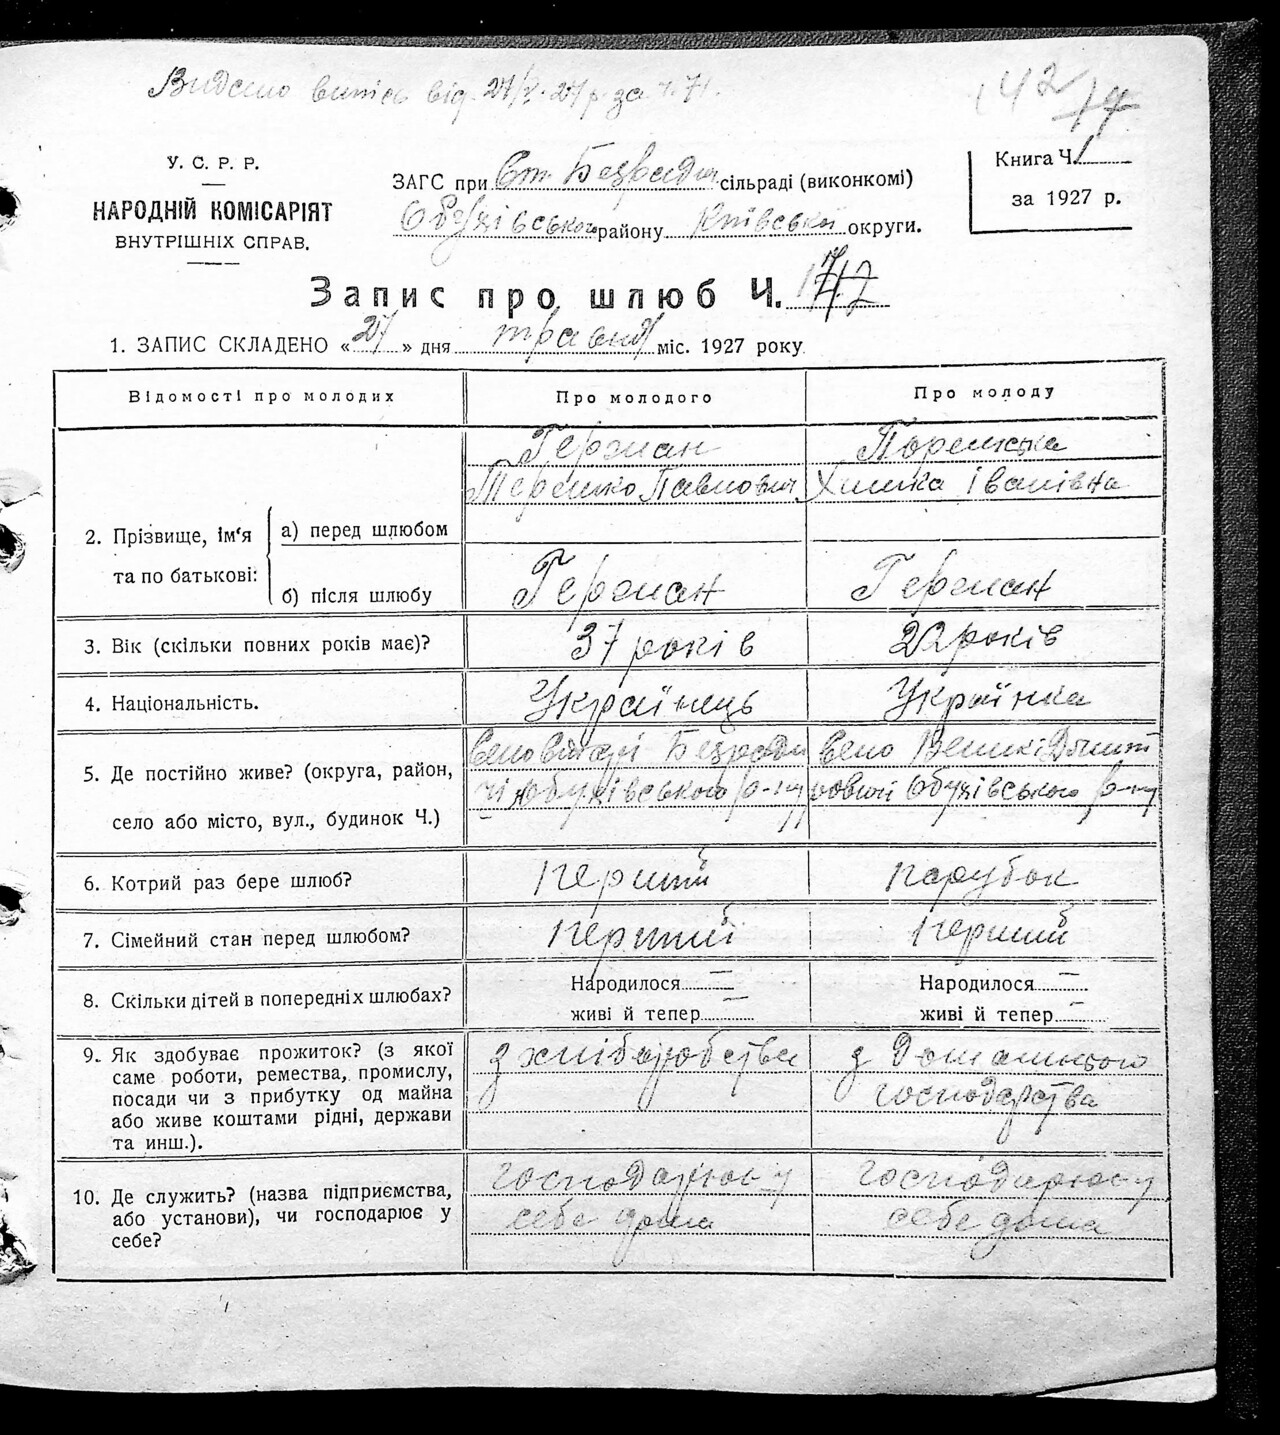 Видано витісь від 27/V. 27 р. за ч. 71.
142
У. С. Р. Р.
НАРОДНІЙ КОМІСАРІЯТ
ВНУТРІШНІХ СПРАВ.
ЗАГС при Ст. Безрадич сільраді (виконкомі)
Обухівського району Київської округи.
Книга Ч. 1
за 1927 р.
Запис про шлюб Ч. 17
1. ЗАПИС СКЛАДЕНО «27» дня травня міс. 1927 року
Відомості про молодих
Про молодого
Про молоду
2. Прізвище, ім‘я та по батькові:
а) перед шлюбом
Герман
Терешко Павлович
Порицька
Химка Іванівна
б) після шлюбу
Герман
Герман
3. Вік (скільки повних років має)?
37 років
22 років
4. Національність.
Українець
Українка
5. Де постійно живе? (округа, район,
село або місто, вул., будинок Ч.)
Село Старі Безради
чі Обухівського р-ну
Село Великі Дмит
ровичі Обухівського р-ну
6. Котрий раз бере шлюб?
перший
парубок
7. Сімейний стан перед шлюбом?
перший
перший
8. Скільки дітей в попередніх шлюбах?
Народилося —
живі й тепер —
Народилося —
живі й тепер —
9. Як здобуває прожиток? (з якої
саме роботи, ремества, промислу,
посади чи з прибутку од майна
або живе коштами рідні, держави
та инш.).
з хліборобства
з Домашнього
господарства
10. Де служить? (назва підприємства,
або установи), чи господарює у
себе?
господарює у
себе дома
господарює у
себе дома